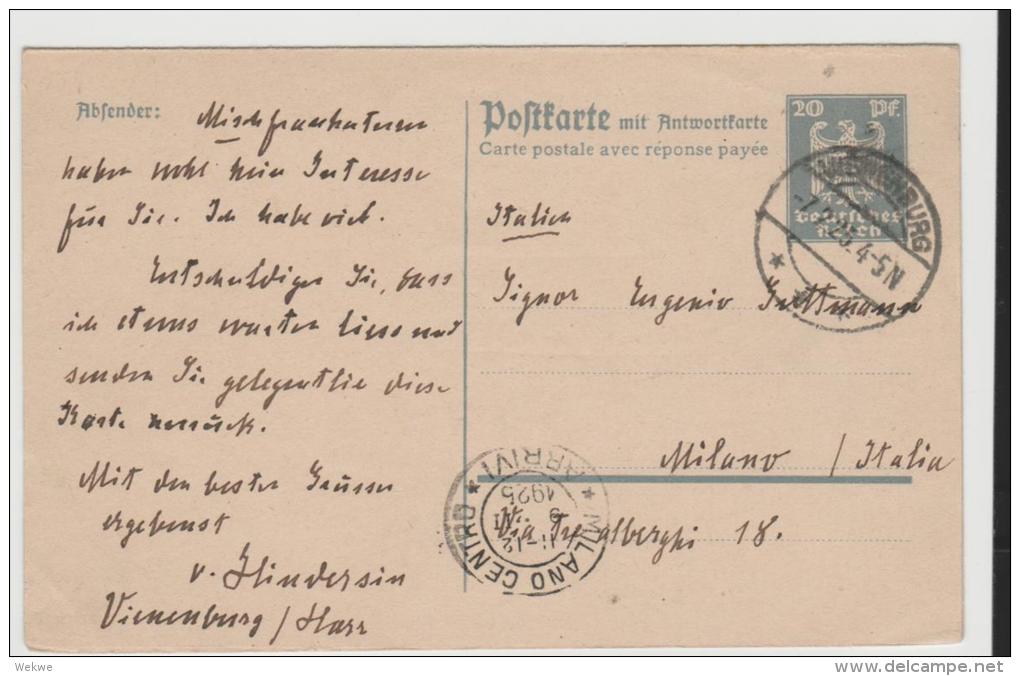 Absender:
Mischfrankaturen
haben wohl kein Interesse
für Sie. Ich habe viel.
Entschuldigen Sie, dass
ich etwas warten liess und
senden Sie gelegentlich diese
Karte zurück.
Mit den besten Grüssen
ergebenst
v. Hindersin
Vienenburg / Harz
Postkarte mit Antwortkarte
Carte postale avec réponse payée
20 Pf.
Deutsches
Reich
VIENENBURG
25. 4-5N
Italien
Signor Eugenio Guttmann
Milano / Italia
Via 18.
MILANO CENTRO
ARRIVI
1925
Wekwe
www.delcampe.net